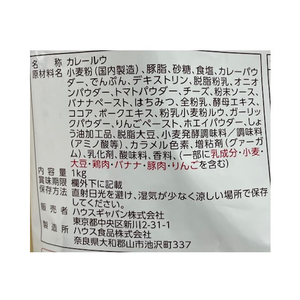 名称 カレールウ
原材料名 小麦粉(国内製造)、豚脂、砂糖、食塩、カレーパウ
ダー、でんぷん、デキストリン、脱脂粉乳、オニオ
ンパウダー、トマトパウダー、チーズ、粉末ソース、
バナナペースト、はちみつ、全粉乳、酵母エキス、
ココア、ポークエキス、粉乳小麦粉ルウ、ガーリッ
クパウダー、りんごペースト、ホエイパウダー、しょ
う油加工品、脱脂大豆、小麦発酵調味料/調味料
(アミノ酸等)、カラメル色素、増粘剤(グァーガ
ム)、乳化剤、酸味料、香料、(一部に乳成分・小麦・
大豆・鶏肉・バナナ・豚肉・りんごを含む)
内容量 1kg
賞味期限 欄外下に記載
保存方法 直射日光を避け、湿気が少なく涼しい場所で保存
してください。
販売者 ハウスギャバン株式会社
東京都中央区新川2-31-1
製造所 ハウス食品株式会社
奈良県大和郡山市池沢町337